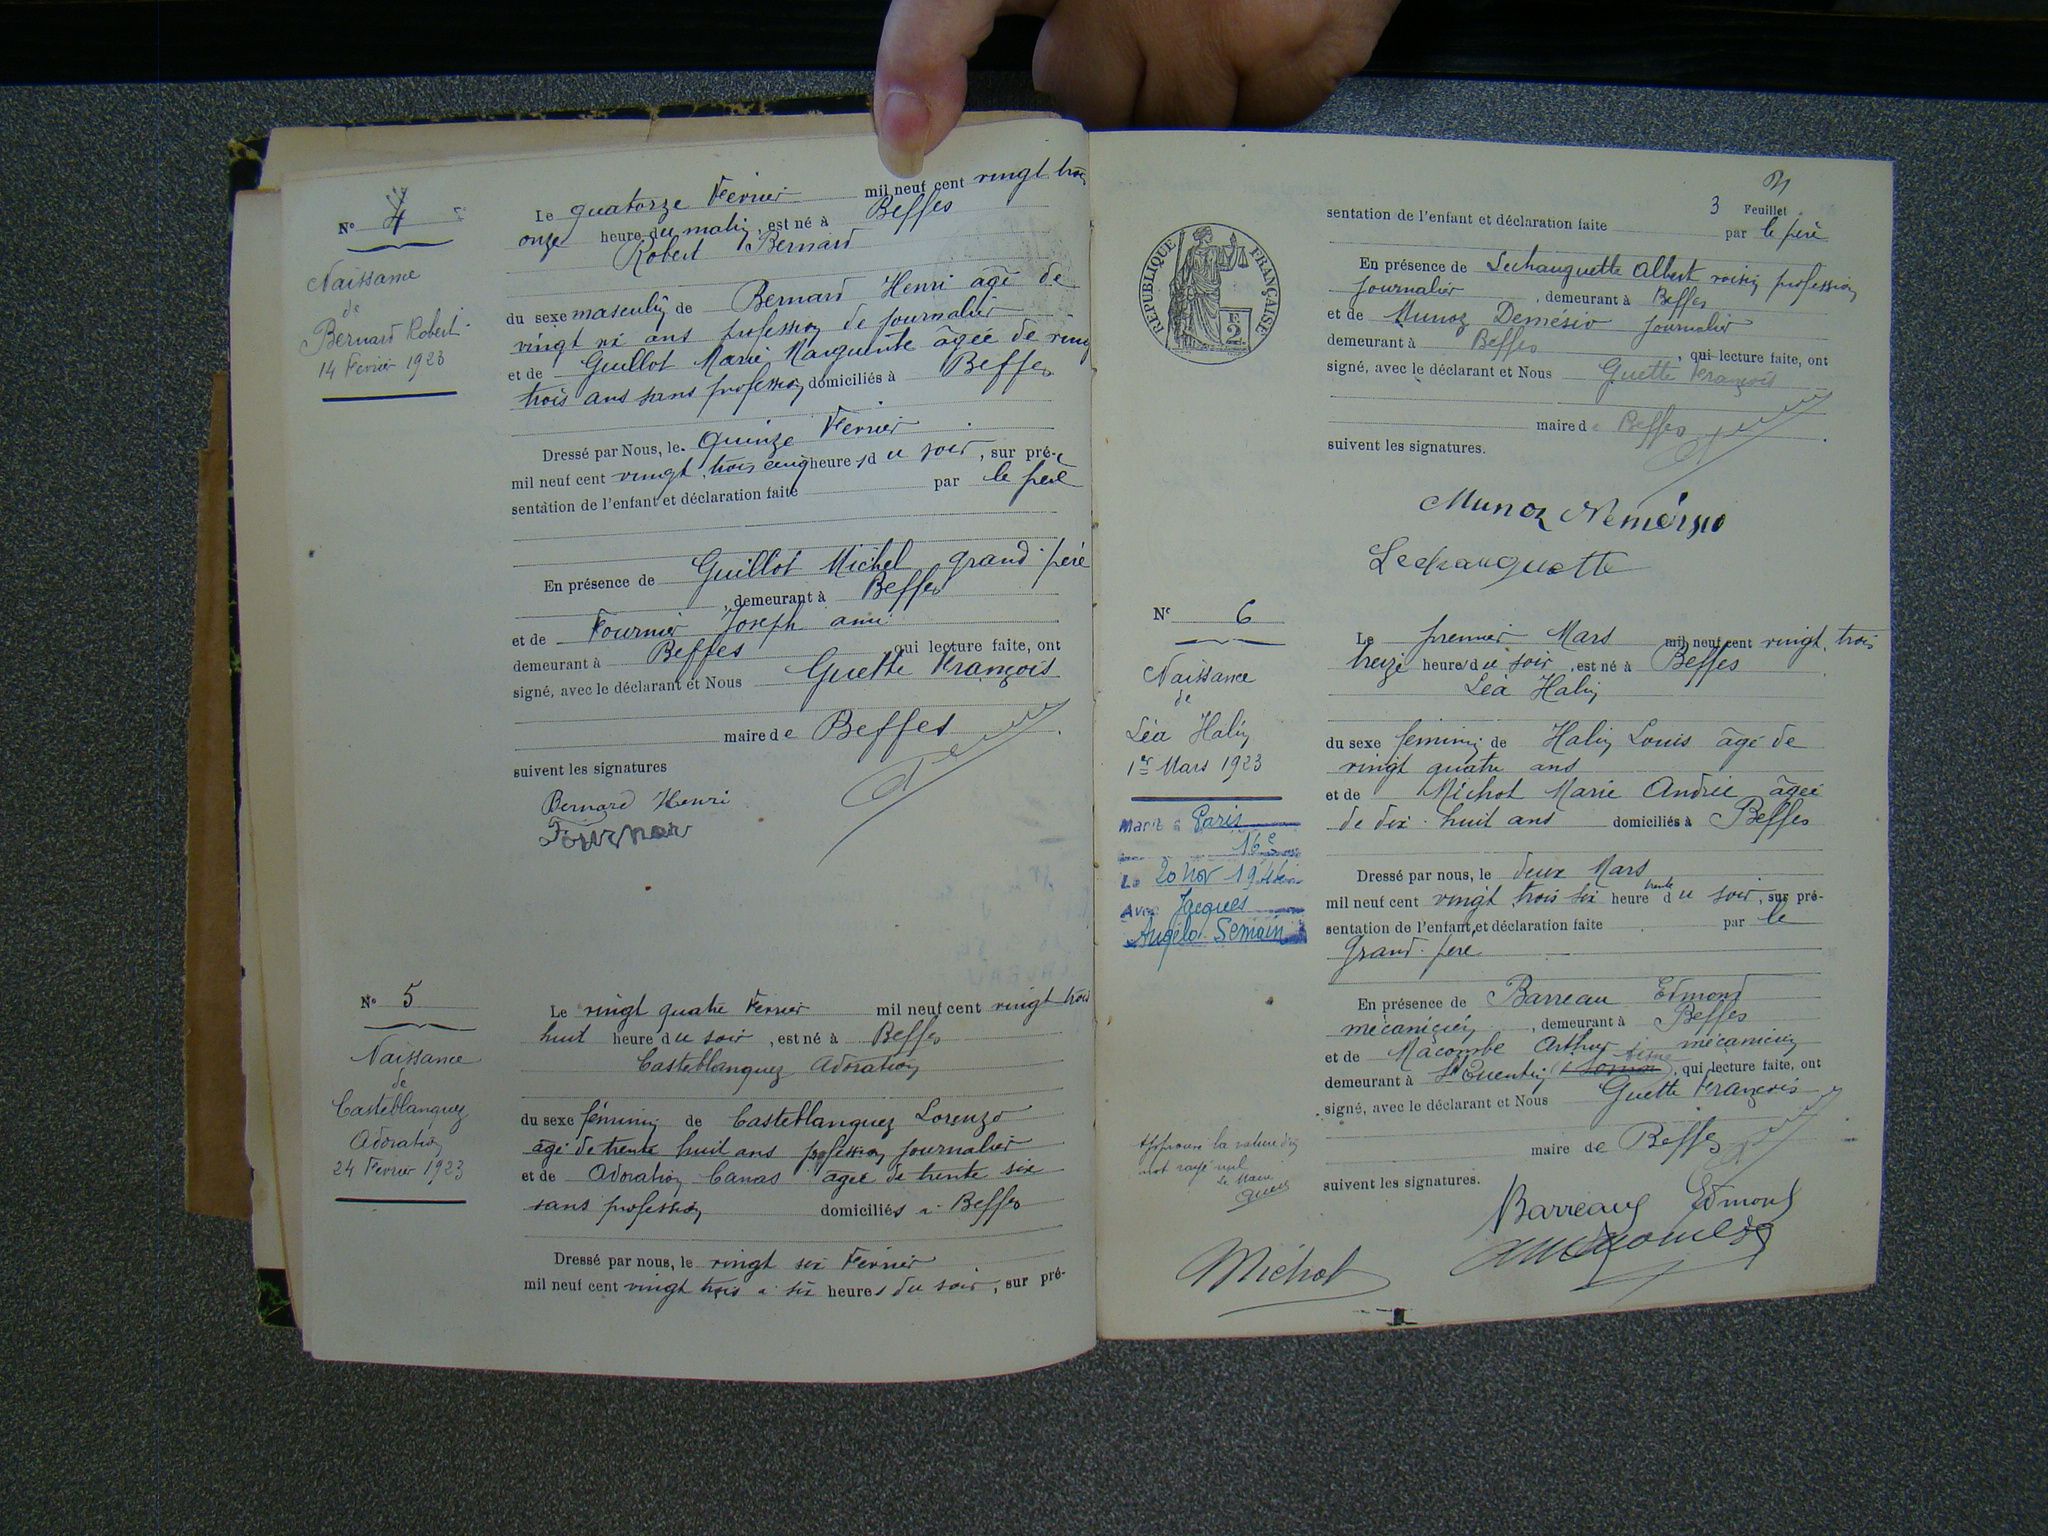 Nº 4
Naissance
de
Bernard Robert
14 Fevrier 1923
Le quatorze Fevrier mil neuf cent vingt trois
onze heure du matin, est né à Beffes
Robert Bernard
du sexe masculin de Bernard Henri âgé de
vingt six ans profession de journalier
et de Guillot Marie Marguerite âgée de vingt
trois ans sans profession domiciliés à Beffes
Dressé par Nous, le quinze Fevrier
mil neuf cent vingt trois cinq heures du soir, sur pré-
sentation de l'enfant et déclaration faite par le père
En présence de Guillot Michel grand-père
, demeurant à Beffes
et de Fournier Joseph ami
demeurant à Beffes qui lecture faite, ont
signé, avec le déclarant et Nous Guette François
maire de Beffes
suivent les signatures
Bernard Henri
Fournier
Nº 5
Naissance
de
Casteblanquez
Adoration
24 Fevrier 1923
Le vingt quatre Fevrier mil neuf cent vingt trois
huit heure du soir, est né à Beffes
Casteblanquez Adoration
du sexe féminin de Casteblanquez Lorenzo
âgé de trente huit ans profession journalier
et de Adoration Canas âgée de trente six
sans profession domiciliés à Beffes
Dressé par nous, le vingt six Fevrier
mil neuf cent vingt trois à six heures du soir, sur pré-
3 Feuillet
sentation de l'enfant et déclaration faite par le père
En présence de Lechauguette Albert voisin profession
journalier, demeurant à Beffes
et de Munoz Demésio journalier
demeurant à Beffes, qui lecture faite, ont
signé, avec le déclarant et Nous Guette François
maire de Beffes
suivent les signatures.
RÉPUBLIQUE FRANÇAISE
2 F
Munoz Nemésio
Lechauguette
Nº 6
Naissance
de
Léa Halin
1er Mars 1923
Marié à Paris
16e
Le 20 Nov 1944
Avec Jacques
Angelo Semain
Le premier Mars mil neuf cent vingt trois
treize heures du soir, est né à Beffes
Léa Halin
du sexe féminin de Halin Louis âgé de
vingt quatre ans
et de Michot Marie Andrée âgée
de dix-huit ans domiciliés à Beffes
Dressé par nous, le deux Mars
mil neuf cent vingt trois six heure trente du soir, sur pré-
sentation de l'enfant et déclaration faite par le
Grand-père
En présence de Barreau Edmond
mécanicien, demeurant à Beffes
et de Macombe Arthur mécanicien
demeurant à St Quentin, qui lecture faite, ont
signé, avec le déclarant et Nous Guette François
maire de Beffes
Approuvé la rature d'un
mot rayé nul
Le Maire
Guette
suivent les signatures.
Barreau Edmond
Michot